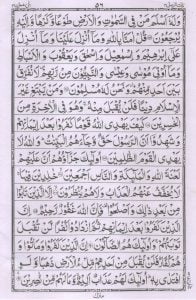 ٥٦
وَلَهٗۤ اَسْلَمَ مَنْ فِی السَّمٰوٰتِ وَالْاَرْضِ طَوْعًا وَّكَرْهًا وَّاِلَیْهِ
یُرْجَعُوْنَ قُلْ اٰمَنَّا بِاللّٰهِ وَمَاۤ اُنْزِلَ عَلَیْنَا وَمَاۤ اُنْزِلَ
عَلٰۤی اِبْرٰهِیْمَ وَاِسْمٰعِیْلَ وَاِسْحٰقَ وَیَعْقُوْبَ وَالْاَسْبَاطِ
وَمَاۤ اُوْتِیَ مُوْسٰی وَعِیْسٰی وَالنَّبِیُّوْنَ مِنْ رَّبِّهِمْ لَا نُفَرِّقُ
بَیْنَ اَحَدٍ مِّنْهُمْ وَنَحْنُ لَهٗ مُسْلِمُوْنَ وَمَنْ یَّبْتَغِ غَیْرَ
الْاِسْلَامِ دِیْنًا فَلَنْ یُّقْبَلَ مِنْهُ وَهُوَ فِی الْاٰخِرَةِ مِنَ
الْخٰسِرِیْنَ كَیْفَ یَهْدِی اللّٰهُ قَوْمًا كَفَرُوْا بَعْدَ اِیْمَانِهِمْ
وَشَهِدُوْۤا اَنَّ الرَّسُوْلَ حَقٌّ وَّجَآءَهُمُ الْبَیِّنٰتُ وَاللّٰهُ لَا
یَهْدِی الْقَوْمَ الظّٰلِمِیْنَ اُولٰٓئِكَ جَزَآؤُهُمْ اَنَّ عَلَیْهِمْ
لَعْنَةَ اللّٰهِ وَالْمَلٰٓئِكَةِ وَالنَّاسِ اَجْمَعِیْنَ خٰلِدِیْنَ فِیْهَا لَا
یُخَفَّفُ عَنْهُمُ الْعَذَابُ وَلَا هُمْ یُنْظَرُوْنَ اِلَّا الَّذِیْنَ تَابُوْا
مِنْۢ بَعْدِ ذٰلِكَ وَاَصْلَحُوْا فَاِنَّ اللّٰهَ غَفُوْرٌ رَّحِیْمٌ اِنَّ
الَّذِیْنَ كَفَرُوْا بَعْدَ اِیْمَانِهِمْ ثُمَّ ازْدَادُوْا كُفْرًا لَّنْ تُقْبَلَ
تَوْبَتُهُمْ وَاُولٰٓئِكَ هُمُ الضَّآلُّوْنَ اِنَّ الَّذِیْنَ كَفَرُوْا وَمَاتُوْا وَ
هُمْ كُفَّارٌ فَلَنْ یُّقْبَلَ مِنْ اَحَدِهِمْ مِّلْءُ الْاَرْضِ ذَهَبًا وَّلَوِ
افْتَدٰی بِهٖ اُولٰٓئِكَ لَهُمْ عَذَابٌ اَلِیْمٌ وَّمَا لَهُمْ مِّنْ نّٰصِرِیْنَ